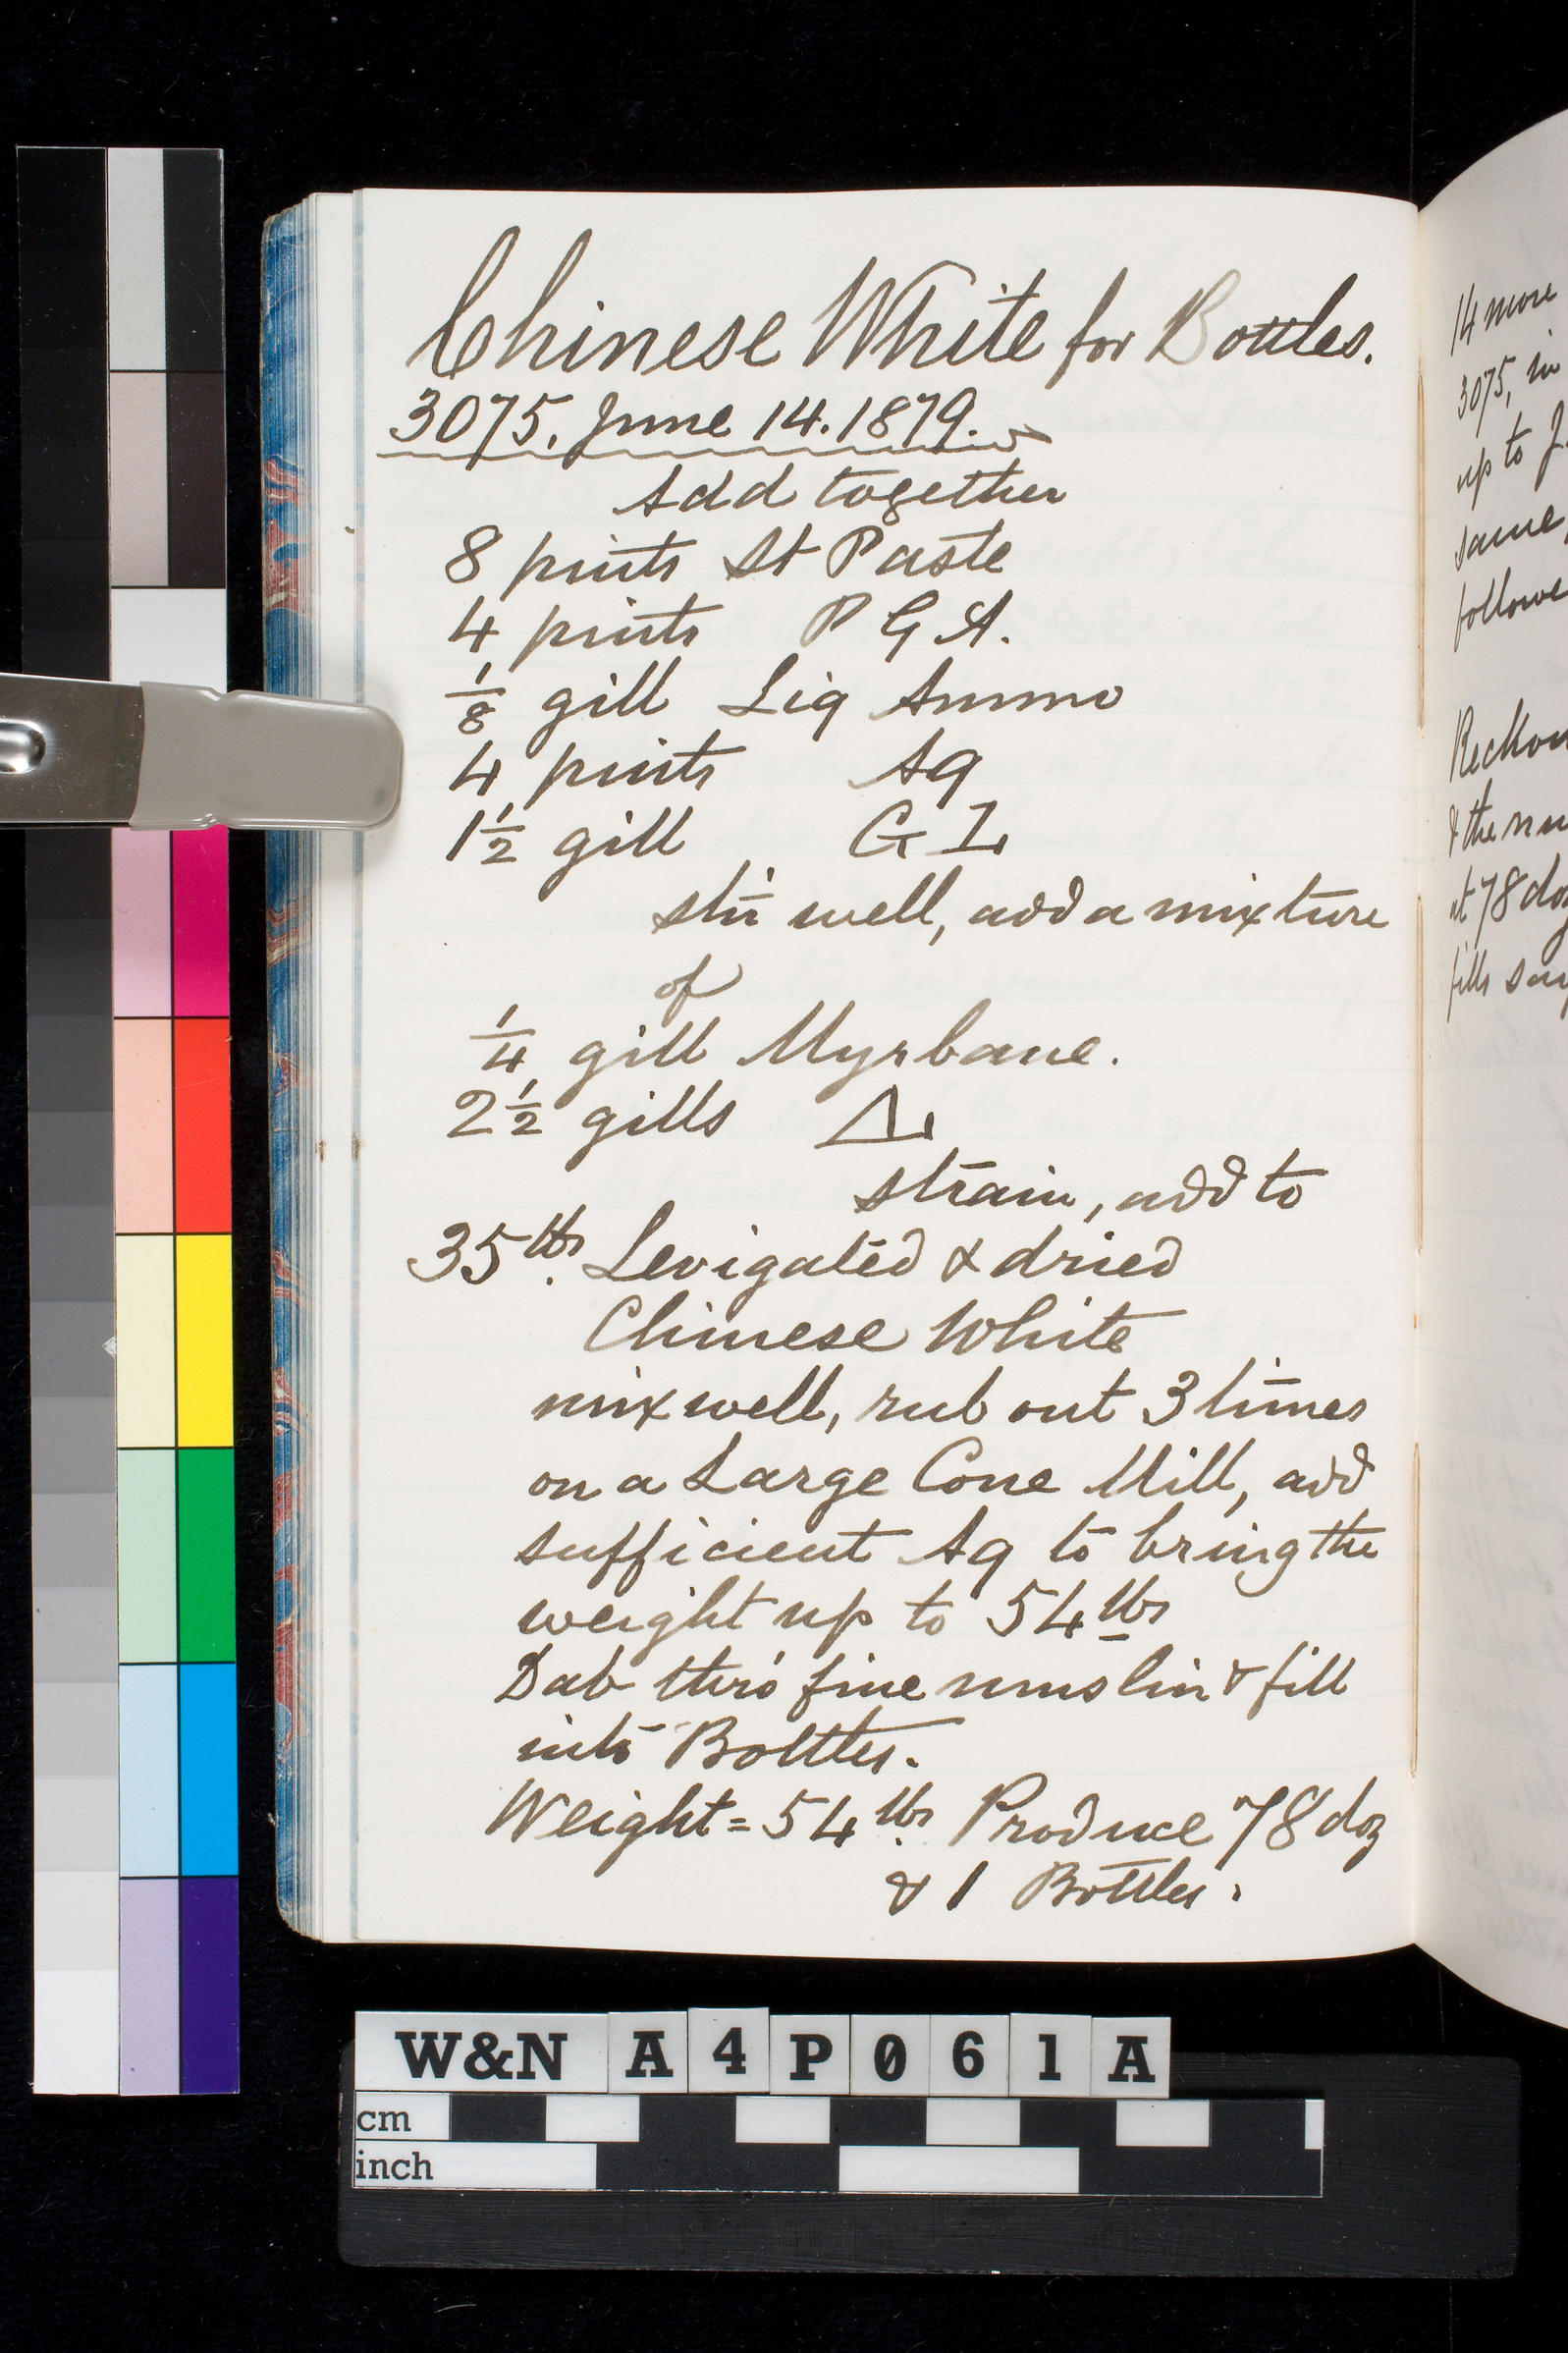 Chinese White for Bottles.
3075. June 14. 1879.
Add together
8 pints St Paste
4 pints P G A.
1/8 gill Liq Ammo
4 pints Aq
1 1/2 gill G I
stir well, add a mixture
of
1/4 gill Myrbane.
2 1/2 gills Δ
strain, add to
35 lbs. Levigated & dried
Chinese White
mix well, rub out 3 times
on a Large Cone Mill, add
sufficient Aq to bring the
weight up to 54 lbs
Dab thro' fine muslin & fill
into Bottles.
Weight = 54 lbs. Produce 78 doz
& 1 Bottles.
14 more
3075, in
up to J.
same,
followe
Reckon
& the nu
at 78 doz
fills say
W&N A4P061A
cm
inch